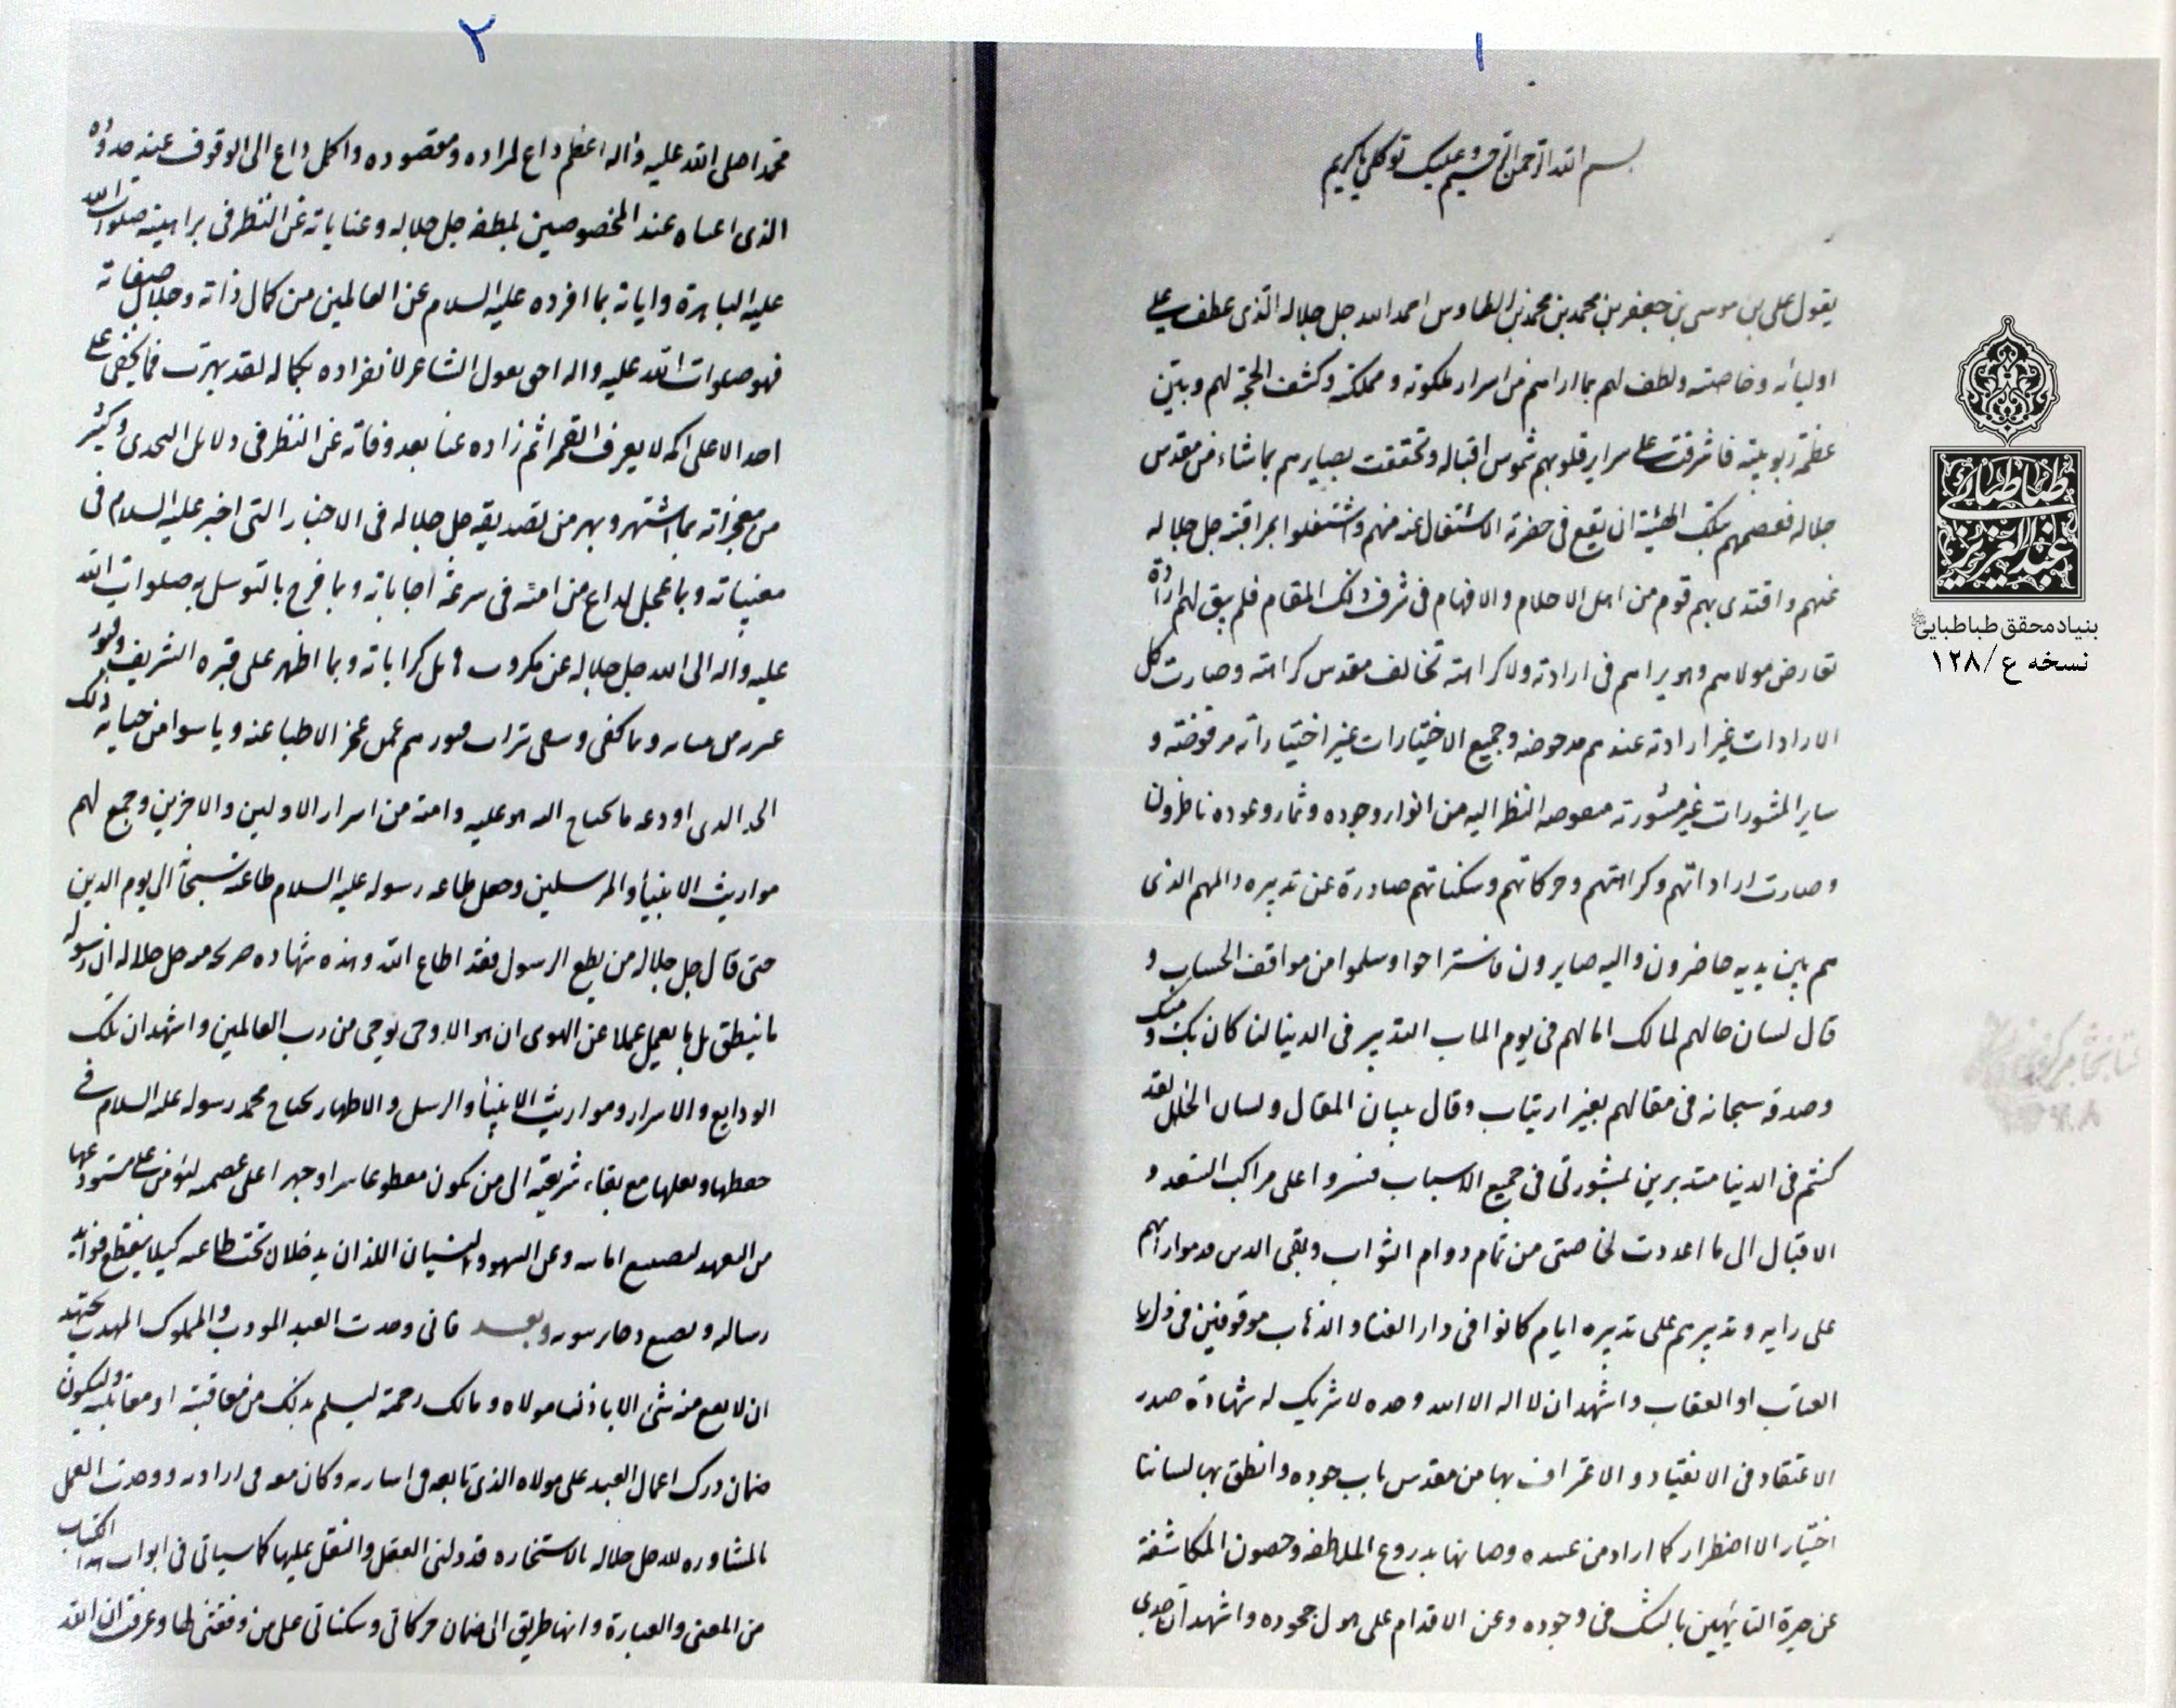 ١
بسم الله الرحمن الرحيم وعليك توكلي يا كريم
يقول على بن موسى بن جعفر بن محمد بن محمد بن الطاوس احمد الله جل جلاله الذى عطف على
اوليائه وخاصته ولطف لهم بما اراهم من اسرار ملكوته ومملكته وكشف الحجة لهم وبين
عظمة ربوبيته فاشرقت على سراير قلوبهم شموس اقباله وتحققت بصايرهم بما شاء من مقدس
جلاله فعصمهم بتلك الهيبة ان يقع فى حضرة الاشتغال عنه منهم واشتغلوا بمراقبته جل جلاله
عنهم واقتدى بهم قوم من اهل الاحلام والافهام فى شرف ذلك المقام فلم يبق لهم ارادة
تعارض مولاهم وهو يراهم فى ارادته ولا كراهته تخالف مقدس كراهته وصارت كل
الارادات غير ارادته عندهم مدحوضه وجميع الاختيارات غير اختياراته مرفوضته و
ساير المشورات غير مشورته منعوصه النظر اليه من انوار وجوده وثمار وعوده ناظرون
وصارت اراداتهم وكراهتهم وحركاتهم وسكناتهم صادرة عن تدبيره والمهم الذى
هم بين يديه حاضرون واليه صايرون فاستراحوا وسلموا من مواقف الحساب و
قال لسان حالهم لمالك امالهم فى يوم الماب التدبير فى الدينا لنا كان بك ومنك
وصدقه سبحانه فى مقالهم بغير ارتياب وقال ببيان المقال ولسان الحال لقد
كنتم فى الدينا متدبرين بمشورتى فى جميع الاسباب فسيروا على مراكب السعد و
الاقبال الى ما اعددت لخاصتى من تمام دوام الثواب وبقى الذين قدموا رايهم
على رايه وتدبيرهم على تدبيره ايام كانوا فى دار الفناء والذهاب موقوفين فى ذل
العتاب او العقاب واشهد ان لا اله الا الله وحده لا شريك له شهادة صدر
الاعتقاد فى الانقياد والاعتراف بها من مقدس باب جوده وانطق بها لساننا
اختيار الا اضطرار كما اراد من عبيده وصانها بدروع الملاطفه وحصون المكاشفة
عن حيرة التايهين بالشك فى وجوده وعن الاقدام على هول جحوده واشهد ان جدى
٢
محمدا صلى الله عليه واله اعظم داع لمراده ومقصوده واكمل داع الى الوقوف عند حدوده
الذى اغناه عند المخصوصين بلطفه جل جلاله وعناياته عن النظر فى براهينه صلوات الله
عليه الباهرة واياته بما افرده عليه السلام عن العالمين من كمال ذاته وجلال صفاته
فهو صلوات الله عليه واله احق بقول الشاعر لانفراده بكماله لقد بهرت فما تخفى على
احد الا على اكمه لا يعرف القمرا ثم زاده غنا بعد وفاته عن النظر فى دلايل التحدى وكثير
من معجزاته بما اشتهر وبهر من تصديقه جل جلاله فى الاخبار التى اخبر عليه السلام فى
مغيباته وبما عجل لداع من امته فى سرعة اجاباته وبما فرج بالتوسل به صلوات الله
عليه واله الى الله جل جلاله عن مكروب هايل كرباته وبما اظهر على قبره الشريف وقبور
عترته من وما كفى وشفى تراب قبورهم عمن عجز الاطباء عنه ويأسوا من حياته ذلك
الجد الذى اودعه ما يحتاج اليه هو عليه وامته من اسرار الاولين والاخرين وجمع لهم
مواريث الانبياء والمرسلين وجعل طاعه رسوله عليه السلام طاعته الى يوم الدين
حتى قال جل جلاله من يطع الرسول فقد اطاع الله وهذه شهاده صريحه منه جل جلاله ان رسوله
ما ينطق بل ما يعمل عملا عن الهوى ان هو الا وحى يوحى من رب العالمين واشهد ان تلك
الودايع والاسرار ومواريث الانبياء والرسل والاطهار يحتاج محمد رسوله عليه السلام فى
حفظها ونقلها مع بقاء شريعته الى من يكون مقطوعا سرا وجهرا على عصمته ليؤمن على مستودعها
من التعمد لتضييع اماناته وعن السهو والنسيان اللذان يدخلان تحت طاعته كيلا ينقطع فوايد
رسالته ويضيع ذخاير نبوته وبعد فانى وجدت العبد المودب والمملوك المهذب يجتهد
ان لا يقع منه شئ الا باذن مولاه ومالك رحمة ليسلم بذلك من معاقبته او معاتبته وليكون
ضمان درك اعمال العبد على مولاه الذى تابعه فى اشارته وكان معه فى ارادته ووجدت العمل
بالمشاوره لله جل جلاله بالاستخاره قد دلنى العقل والنقل عليها كما سياتى فى ابواب هذا الكتاب
من المعنى والعبارة وانها طريق الى ضمان حركاتى وسكناتى على من وفقنى لها وعرفت ان الله
طباطبائى
عبد العزيز
بنیاد محقق طباطبایی
نسخه ع/١٢٨